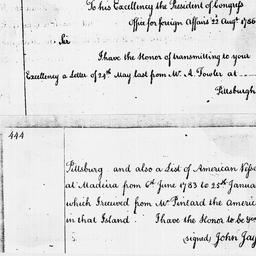 To his Excellency the President of Congress
Office for foreign Affairs 22d Augt 1786
Sir
I have the Honor of transmitting to your
Excellency a Letter of 24th May last from Mr. A. Fowler at
Pittsburgh
444
Pittsburg and also a List of American Vesse
at Madeira from 6th June 1783 to 25th Janua
which I received from Mr Pintard the americ
in that Island. I have the Honor to be &
(signed) John Jay